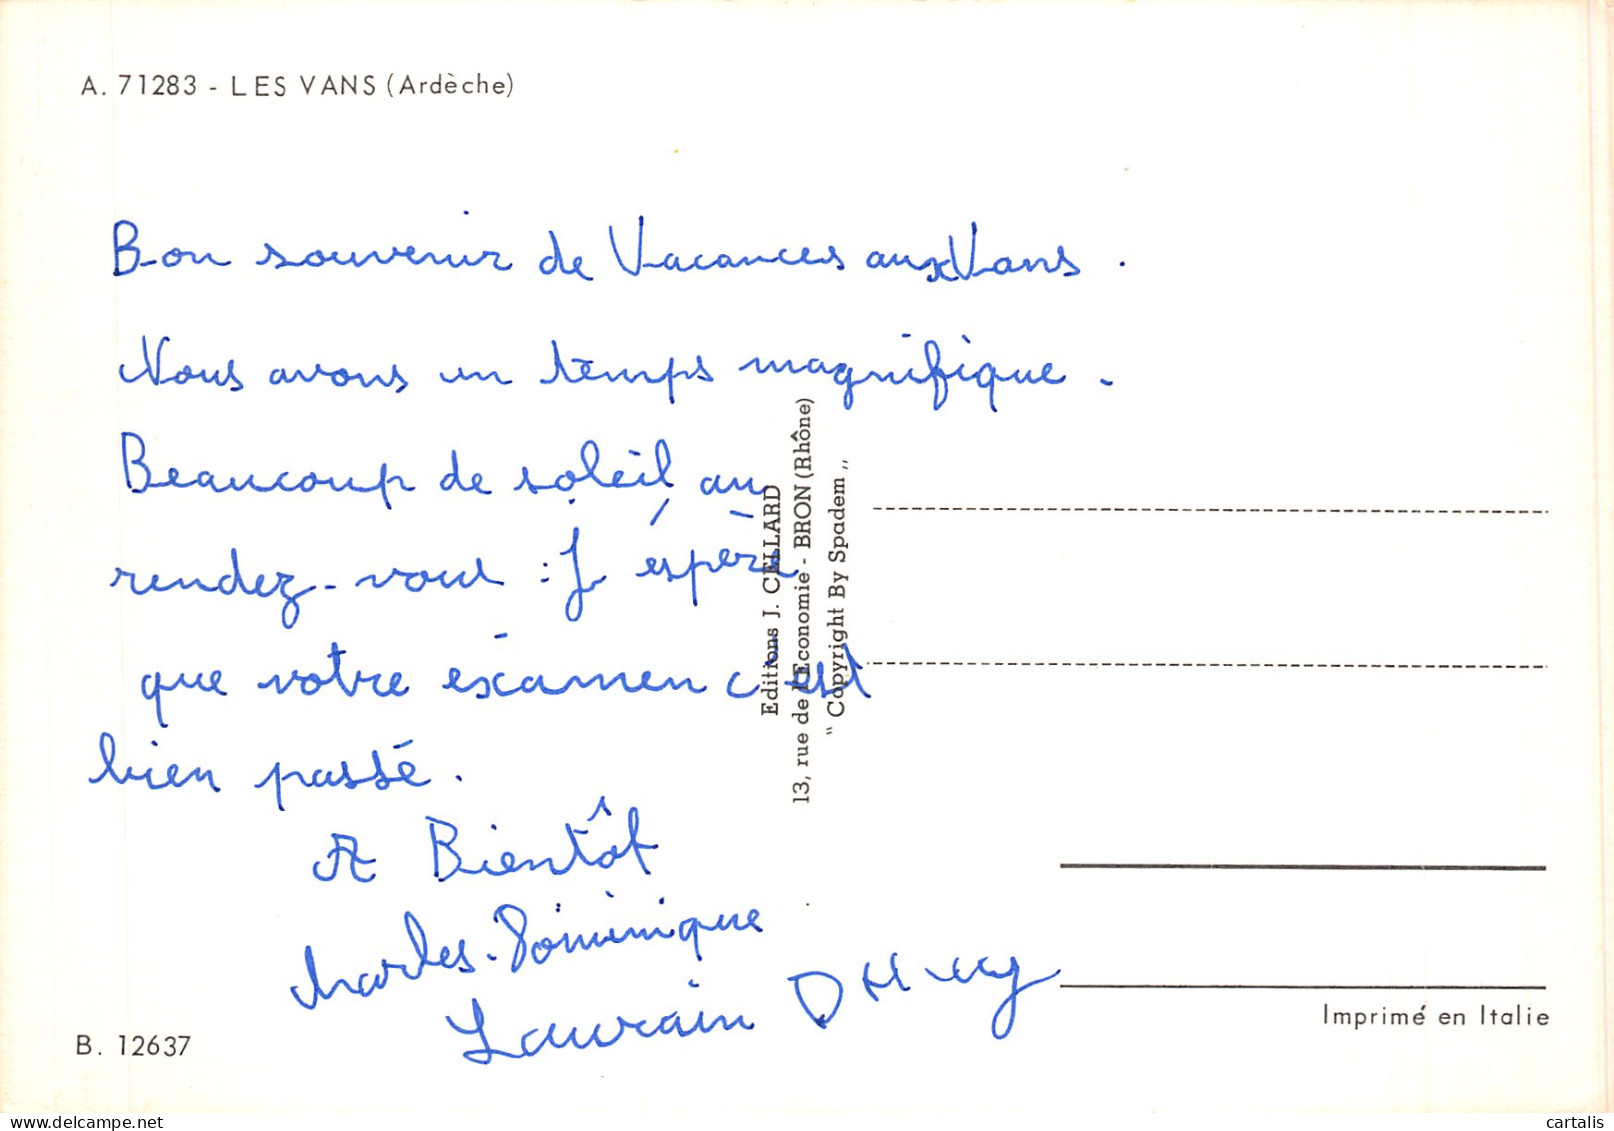 A. 71283 - LES VANS (Ardèche)
Bon souvenir de Vacances aux Vans .
Nous avons un temps magnifique .
Beaucoup de soleil, au
rendez-vous : J'espère
que votre éxamen c'est
bien passé .
A Bientôt
Charles-Dominique
Laurain
Editions J. CELLARD
13, rue de l'Economie - BRON (Rhône)
" Copyright By Spadem "
B. 12637
Imprimé en Italie
cartalis